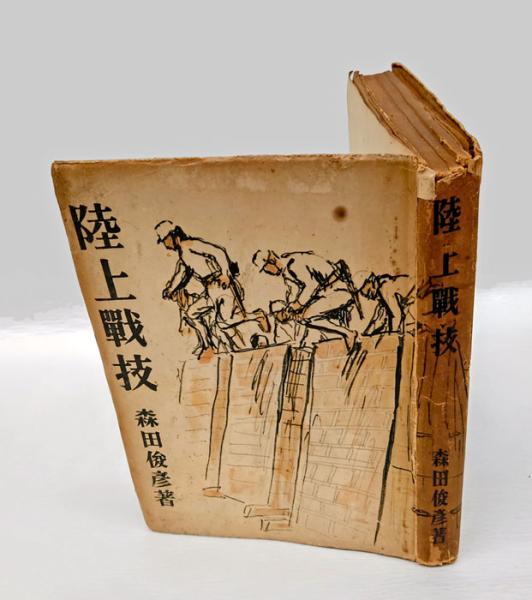 陸上戰技
森田俊彦著
陸上戰技
森田俊彦著